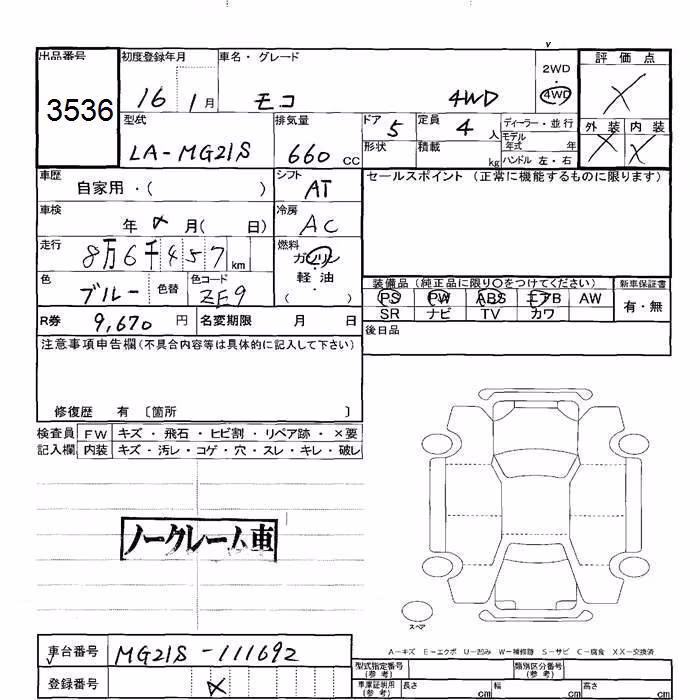 出品番号 初度登録年月 車名・グレード 2WD 評価点
3536 16 1月 モコ 4WD ・ 4WD X
型式 排気量 ドア 5 定員 4人 ディーラー・並行 外装 内装
LA-MG21S 660 CC 形状 積載 kg モデル年式 年 X X
ハンドル 左・右
車歴 自家用・( ) シフト AT セールスポイント (正常に機能するものに限ります)
車検 年 月( 日) 冷房 AC
走行 8万6千457km 燃料 ガソリン
軽油
( )
色 ブルー 色替 色コード ZE9 装備品 (純正品に限り○をつけてください) 新車保証書
PS PW ABS エアB AW 有・無
R券 9,670円 名変期限 月 日 SR ナビ TV カワ
後日品
注意事項申告欄(不具合内容等は具体的に記入して下さい)
修復歴 有 〔箇所 〕
検査員 FW キズ・飛石・ヒビ割・リペア跡・×要
記入欄 内装 キズ・汚レ・コゲ・穴・スレ・キレ・破レ
ノークレーム車
スペア
A-キズ E-エクボ U-凹み W-補修跡 S-サビ C-腐食 XX-交換済
車台番号 MG21S-111692 型式指定番号(参考) 類別区分番号(参考)
登録番号 車庫証明用(参考) 長さ cm 幅 cm 高さ cm